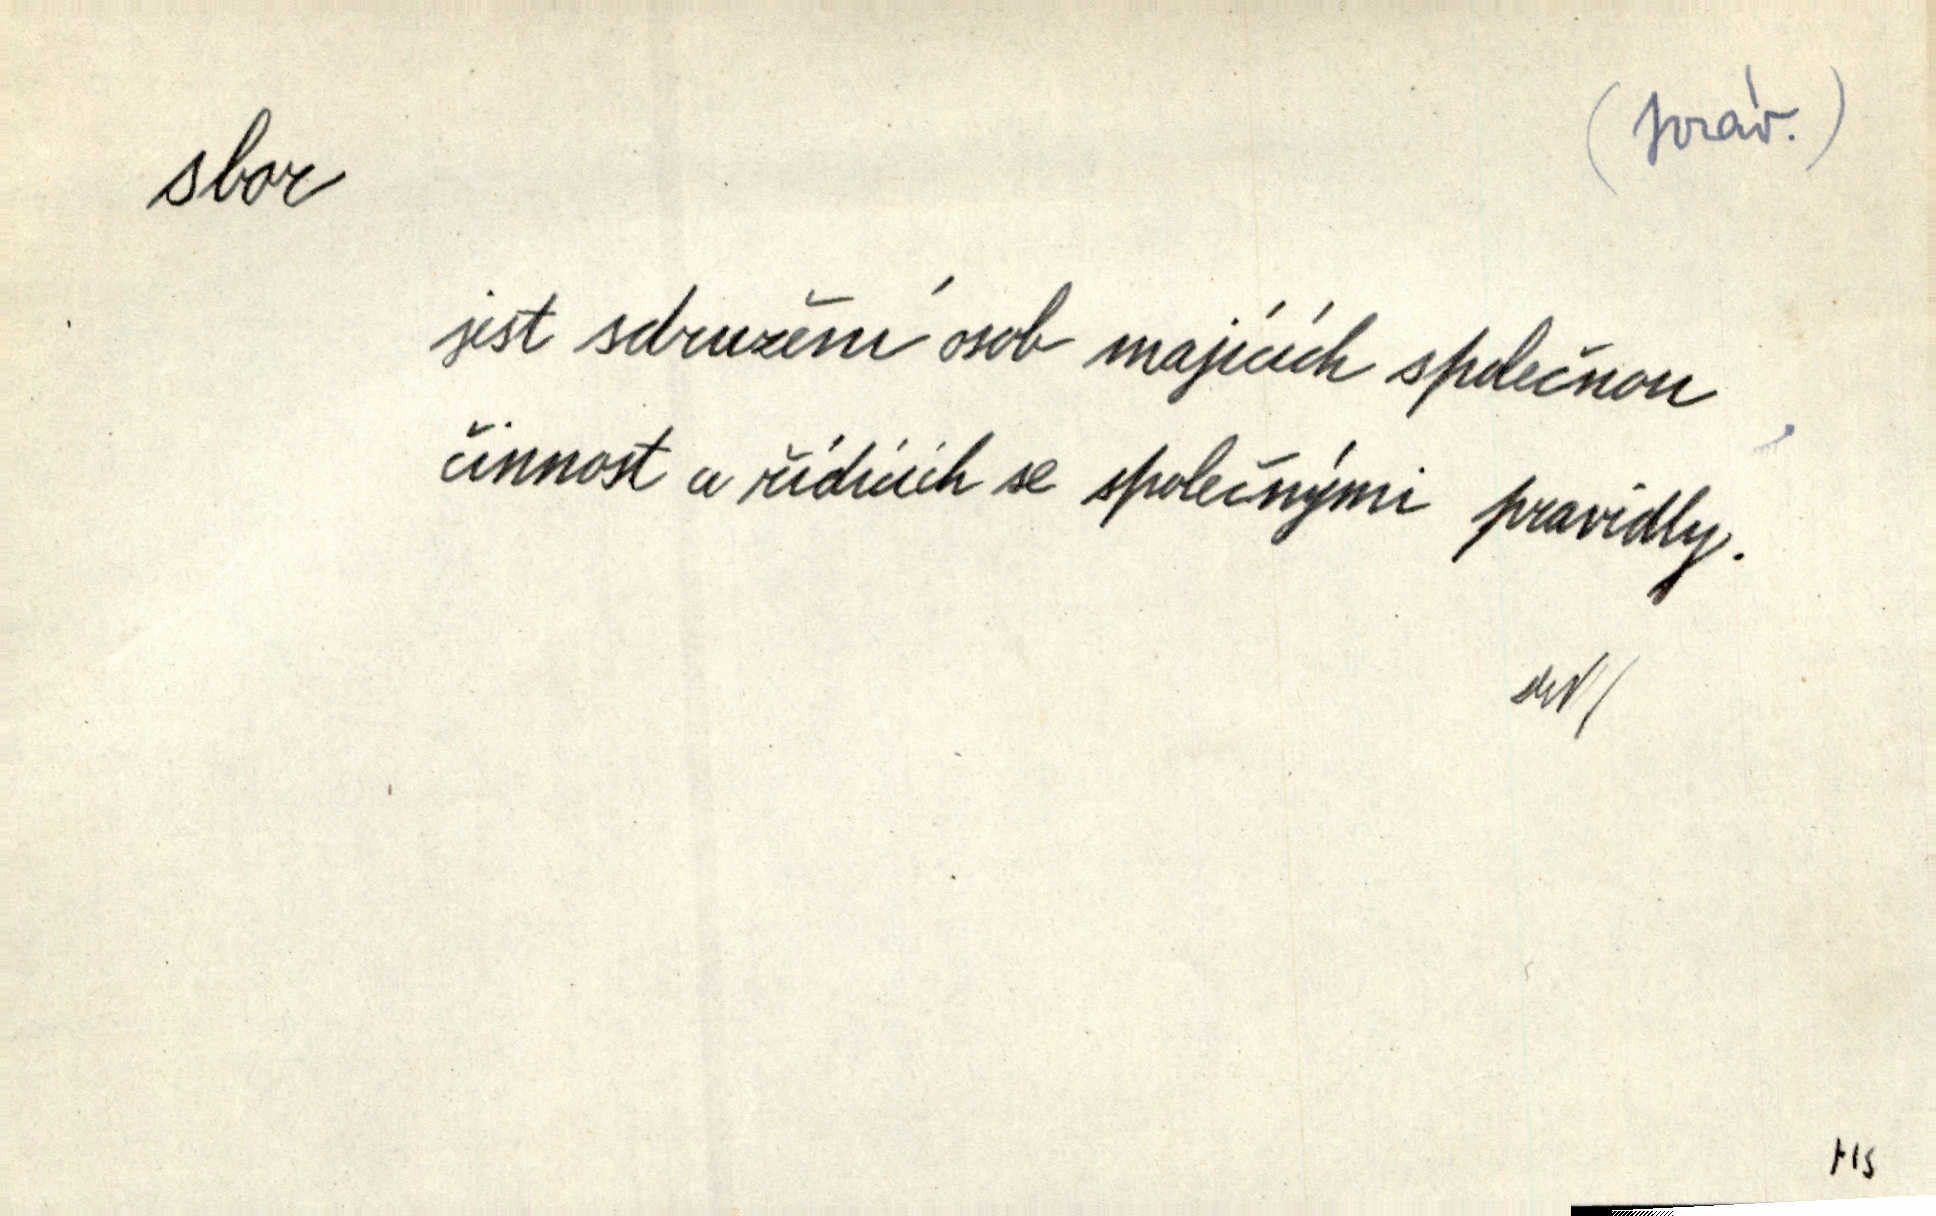 (práv.)
sbor
jest sdružení osob majících společnou
činnost a řídících se společnými pravidly.
Hs